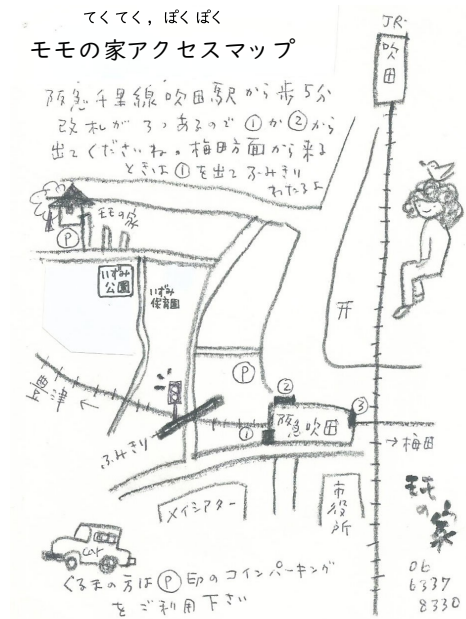 てくてく,ぽくぽく
モモの家アクセスマップ
JR
吹田
阪急千里線吹田駅から歩5分
改札が3つあるので①か②から
出てくださいね。梅田方面から来る
ときは①を出てふみきり
わたるよ
モモの家
P
いずみ
公園
いずみ
保育園
开
P
豊津
←
②
③
①
阪急吹田
→梅田
ふみきり
メイシアター
市役所
モモの家
06
6337
8330
くるまの方はⓅ印のコインパーキング
をご利用下さい